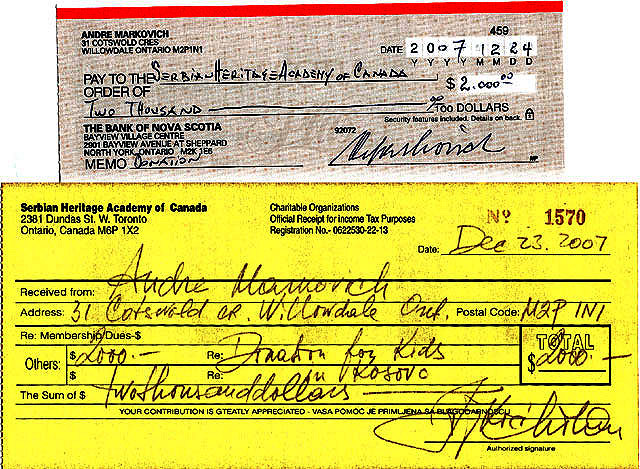 ANDRE MARKOVICH
31 COTSWOLD CRES
WILLOWDALE ONTARIO M2P1N1
459
DATE 2007 12 24
Y Y Y Y M M D D
PAY TO THE SERBIAN HERITAGE ACADEMY OF CANADA
ORDER OF
$ 2.000.00
TWO THOUSAND 00/100 DOLLARS
Security features included. Details on back.
THE BANK OF NOVA SCOTIA
BAYVIEW VILLAGE CENTRE
2901 BAYVIEW AVENUE AT SHEPPARD
NORTH YORK, ONTARIO M2K 1E6
92072
MEMO DONATION
MP
Serbian Heritage Academy of Canada
2381 Dundas St. W. Toronto
Ontario, Canada M6P 1X2
Charitable Organizations
Official Receipt for Income Tax Purposes
Registration No.- 0622530-22-13
Nº 1570
Date: Dec 23. 2007
Received from: Andre Markovich
Address: 31 Cotswold CR. Willowdale Ont. Postal Code: M2P 1N1
Re: Membership Dues-$
Others: $ 2000.- Re: Donation for Kids
$ Re: in Kosovo
TOTAL
$ 2000.-
The Sum of $ two thousand dollars
YOUR CONTRIBUTION IS GTEATLY APPRECIATED - VASA POMOĆ JE PRIMLJENA SA BLAGODARNOSCU
Authorized signature